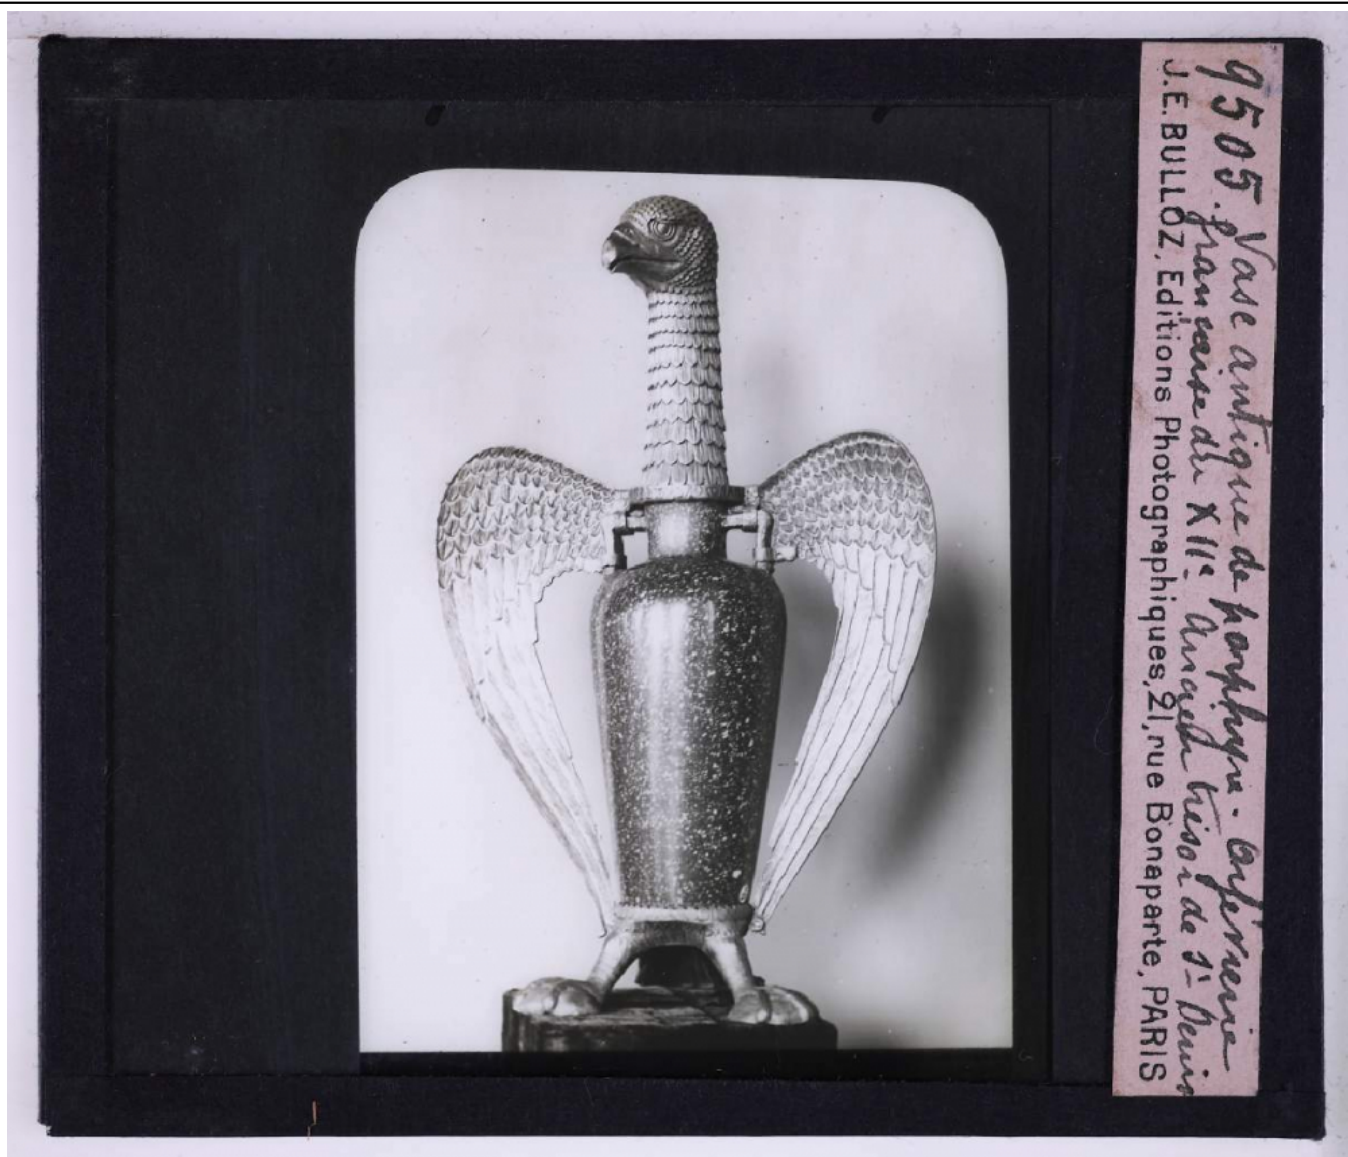 9505. Vase antique de porphyre. Orfèvrerie
française du XIIe. Ancien trésor de St Denis
J.E. BULLOZ, Editions Photographiques, 21, rue Bonaparte, PARIS